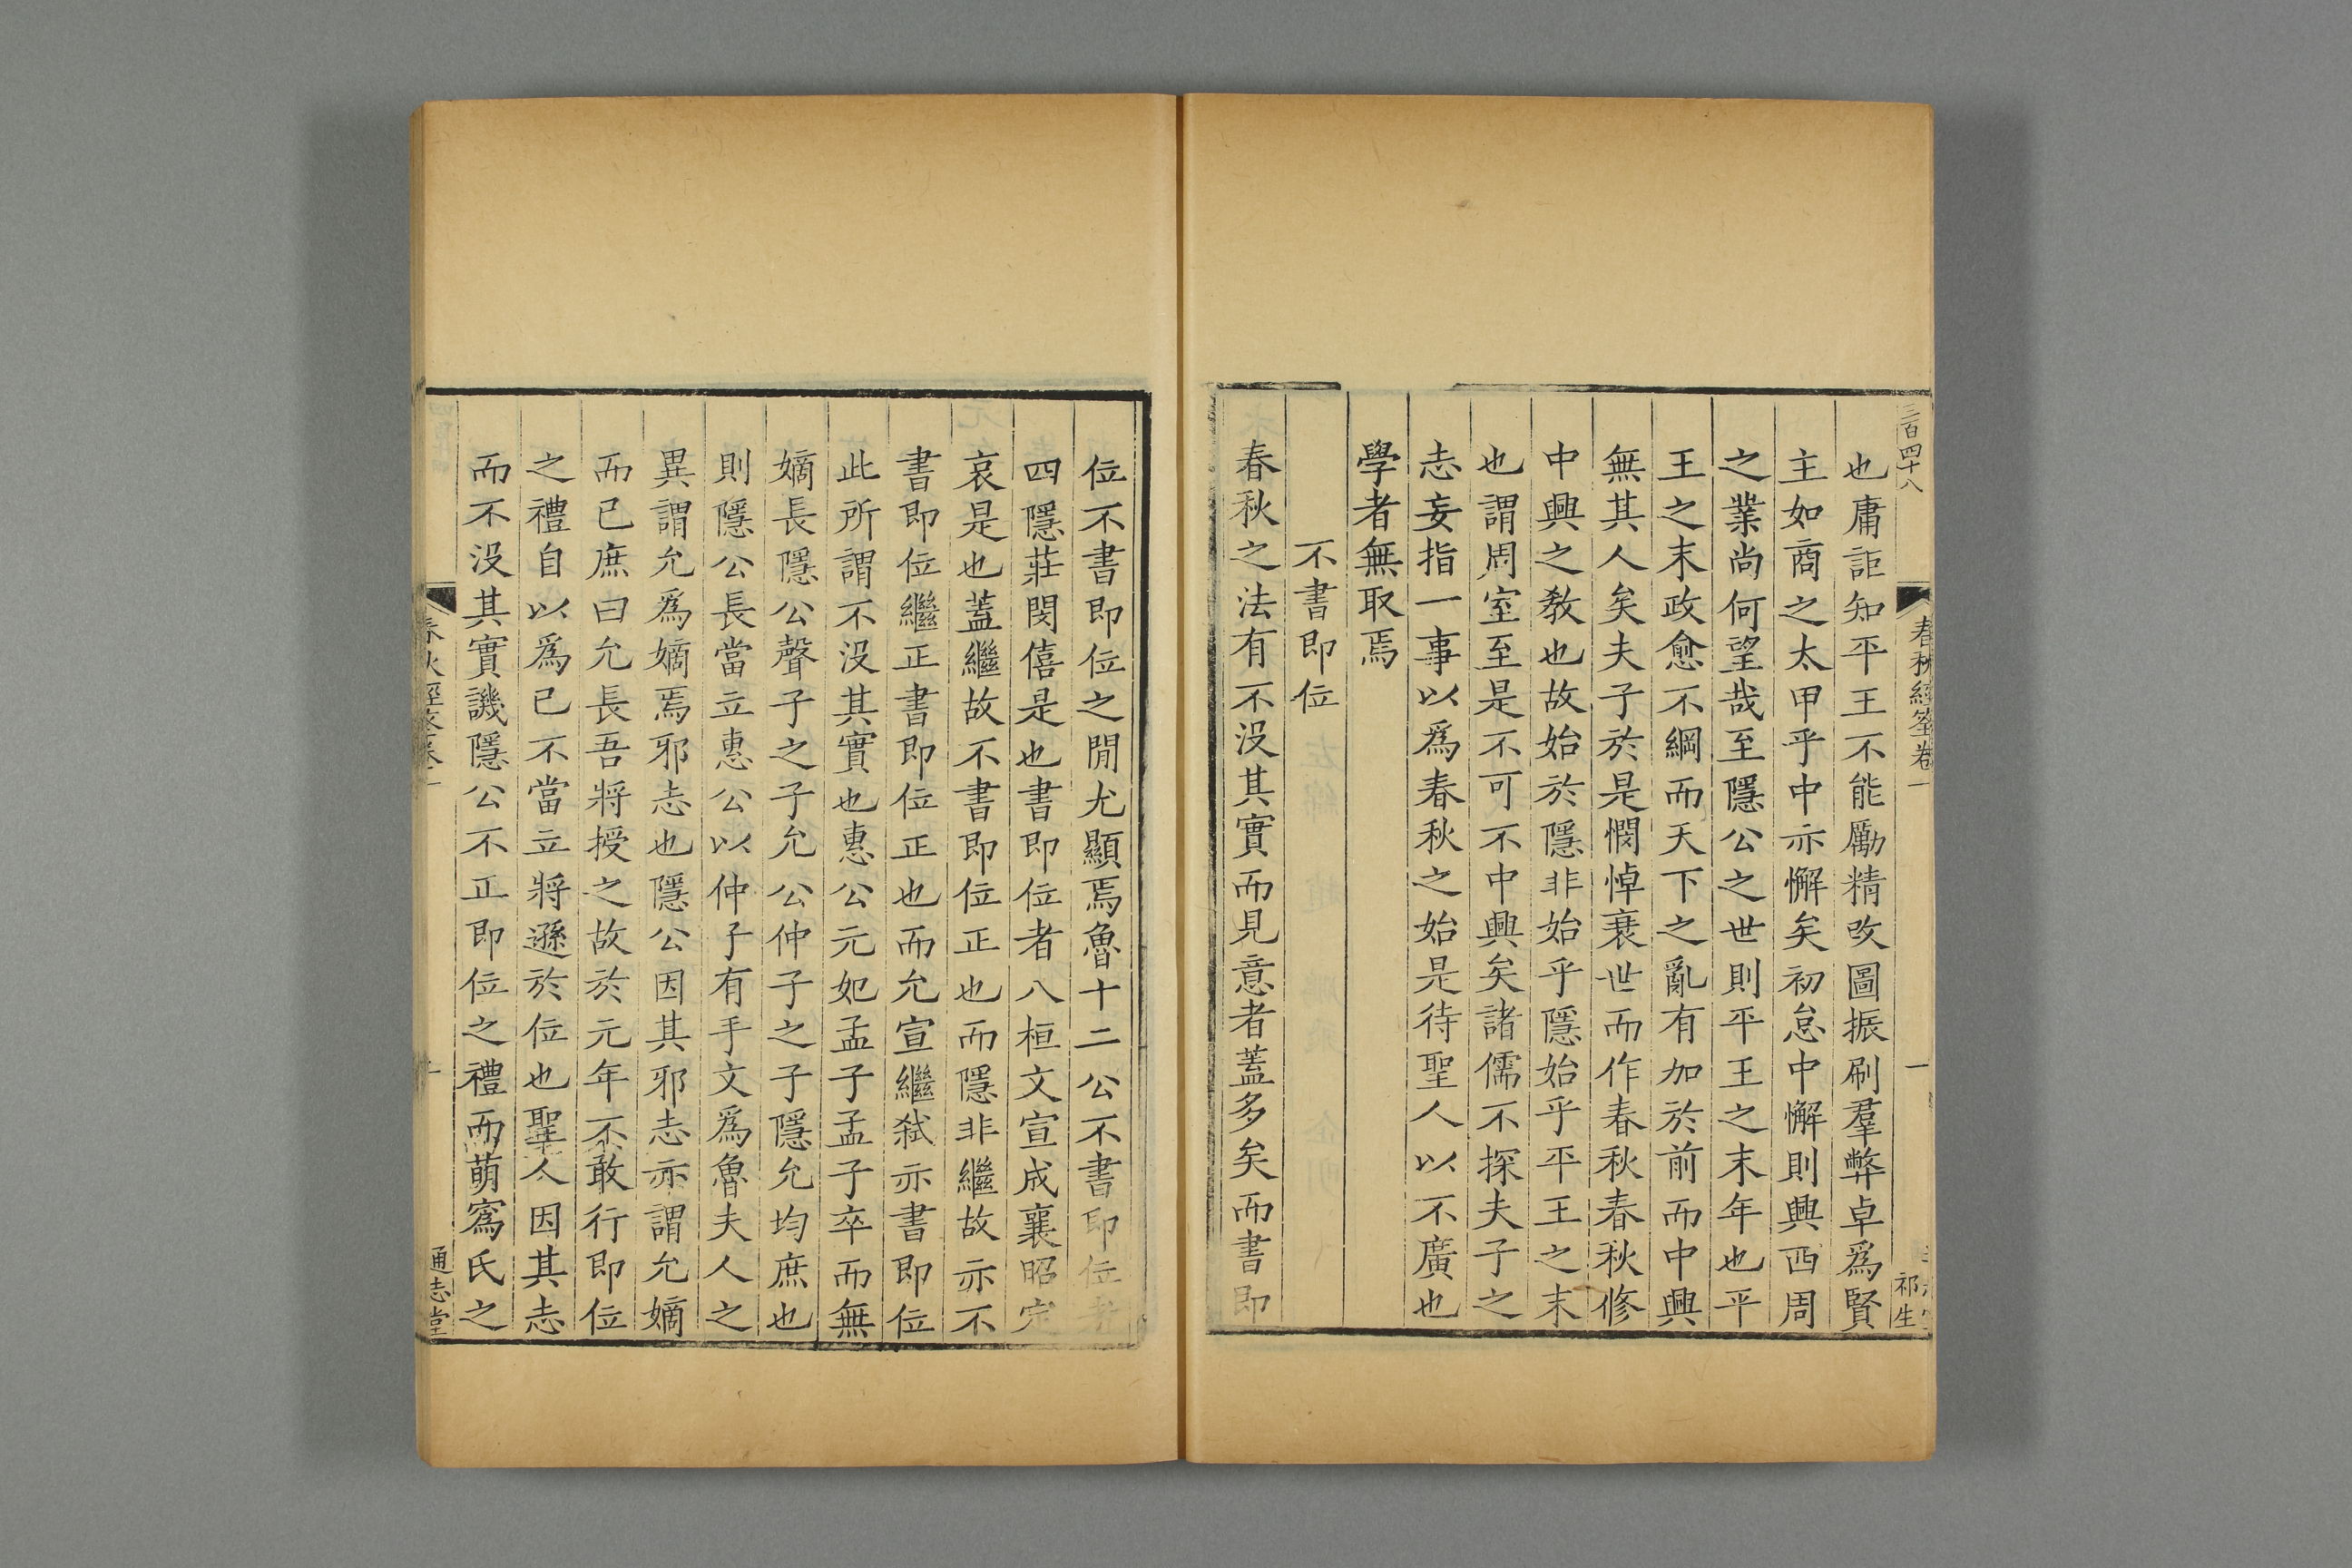 三百四十八
春秋經筌卷一
一
祁生
也庸詎知平王不能勵精改圖振刷羣弊卓爲賢
主如商之太甲乎中亦懈矣初怠中懈則興西周
之業尚何望哉至隱公之世則平王之末年也平
王之末政愈不綱而天下之亂有加於前而中興
無其人矣夫子於是憫悼衰世而作春秋春秋修
中興之教也故始於隱非始乎隱始乎平王之末
也謂周室至是不可不中興矣諸儒不探夫子之
志妄指一事以爲春秋之始是待聖人以不廣也
學者無取焉
不書即位
春秋之法有不没其實而見意者蓋多矣而書即
位不書即位之閒尤顯焉魯十二公不書即位者
四隱莊閔僖是也書即位者八桓文宣成襄昭定
哀是也蓋繼故不書即位正也而隱非繼故亦不
書即位繼正書即位正也而允宣繼弑亦書即位
此所謂不没其實也惠公元妃孟子孟子卒而無
嫡長隱公聲子之子允公仲子之子隱允均庶也
則隱公長當立惠公以仲子有手文爲魯夫人之
異謂允爲嫡焉邪志也隱公因其邪志亦謂允嫡
而已庶曰允長吾將授之故於元年不敢行即位
之禮自以爲已不當立將遜於位也聖人因其志
而不没其實譏隱公不正即位之禮而萌寪氏之
春秋經筌卷一
二
通志堂